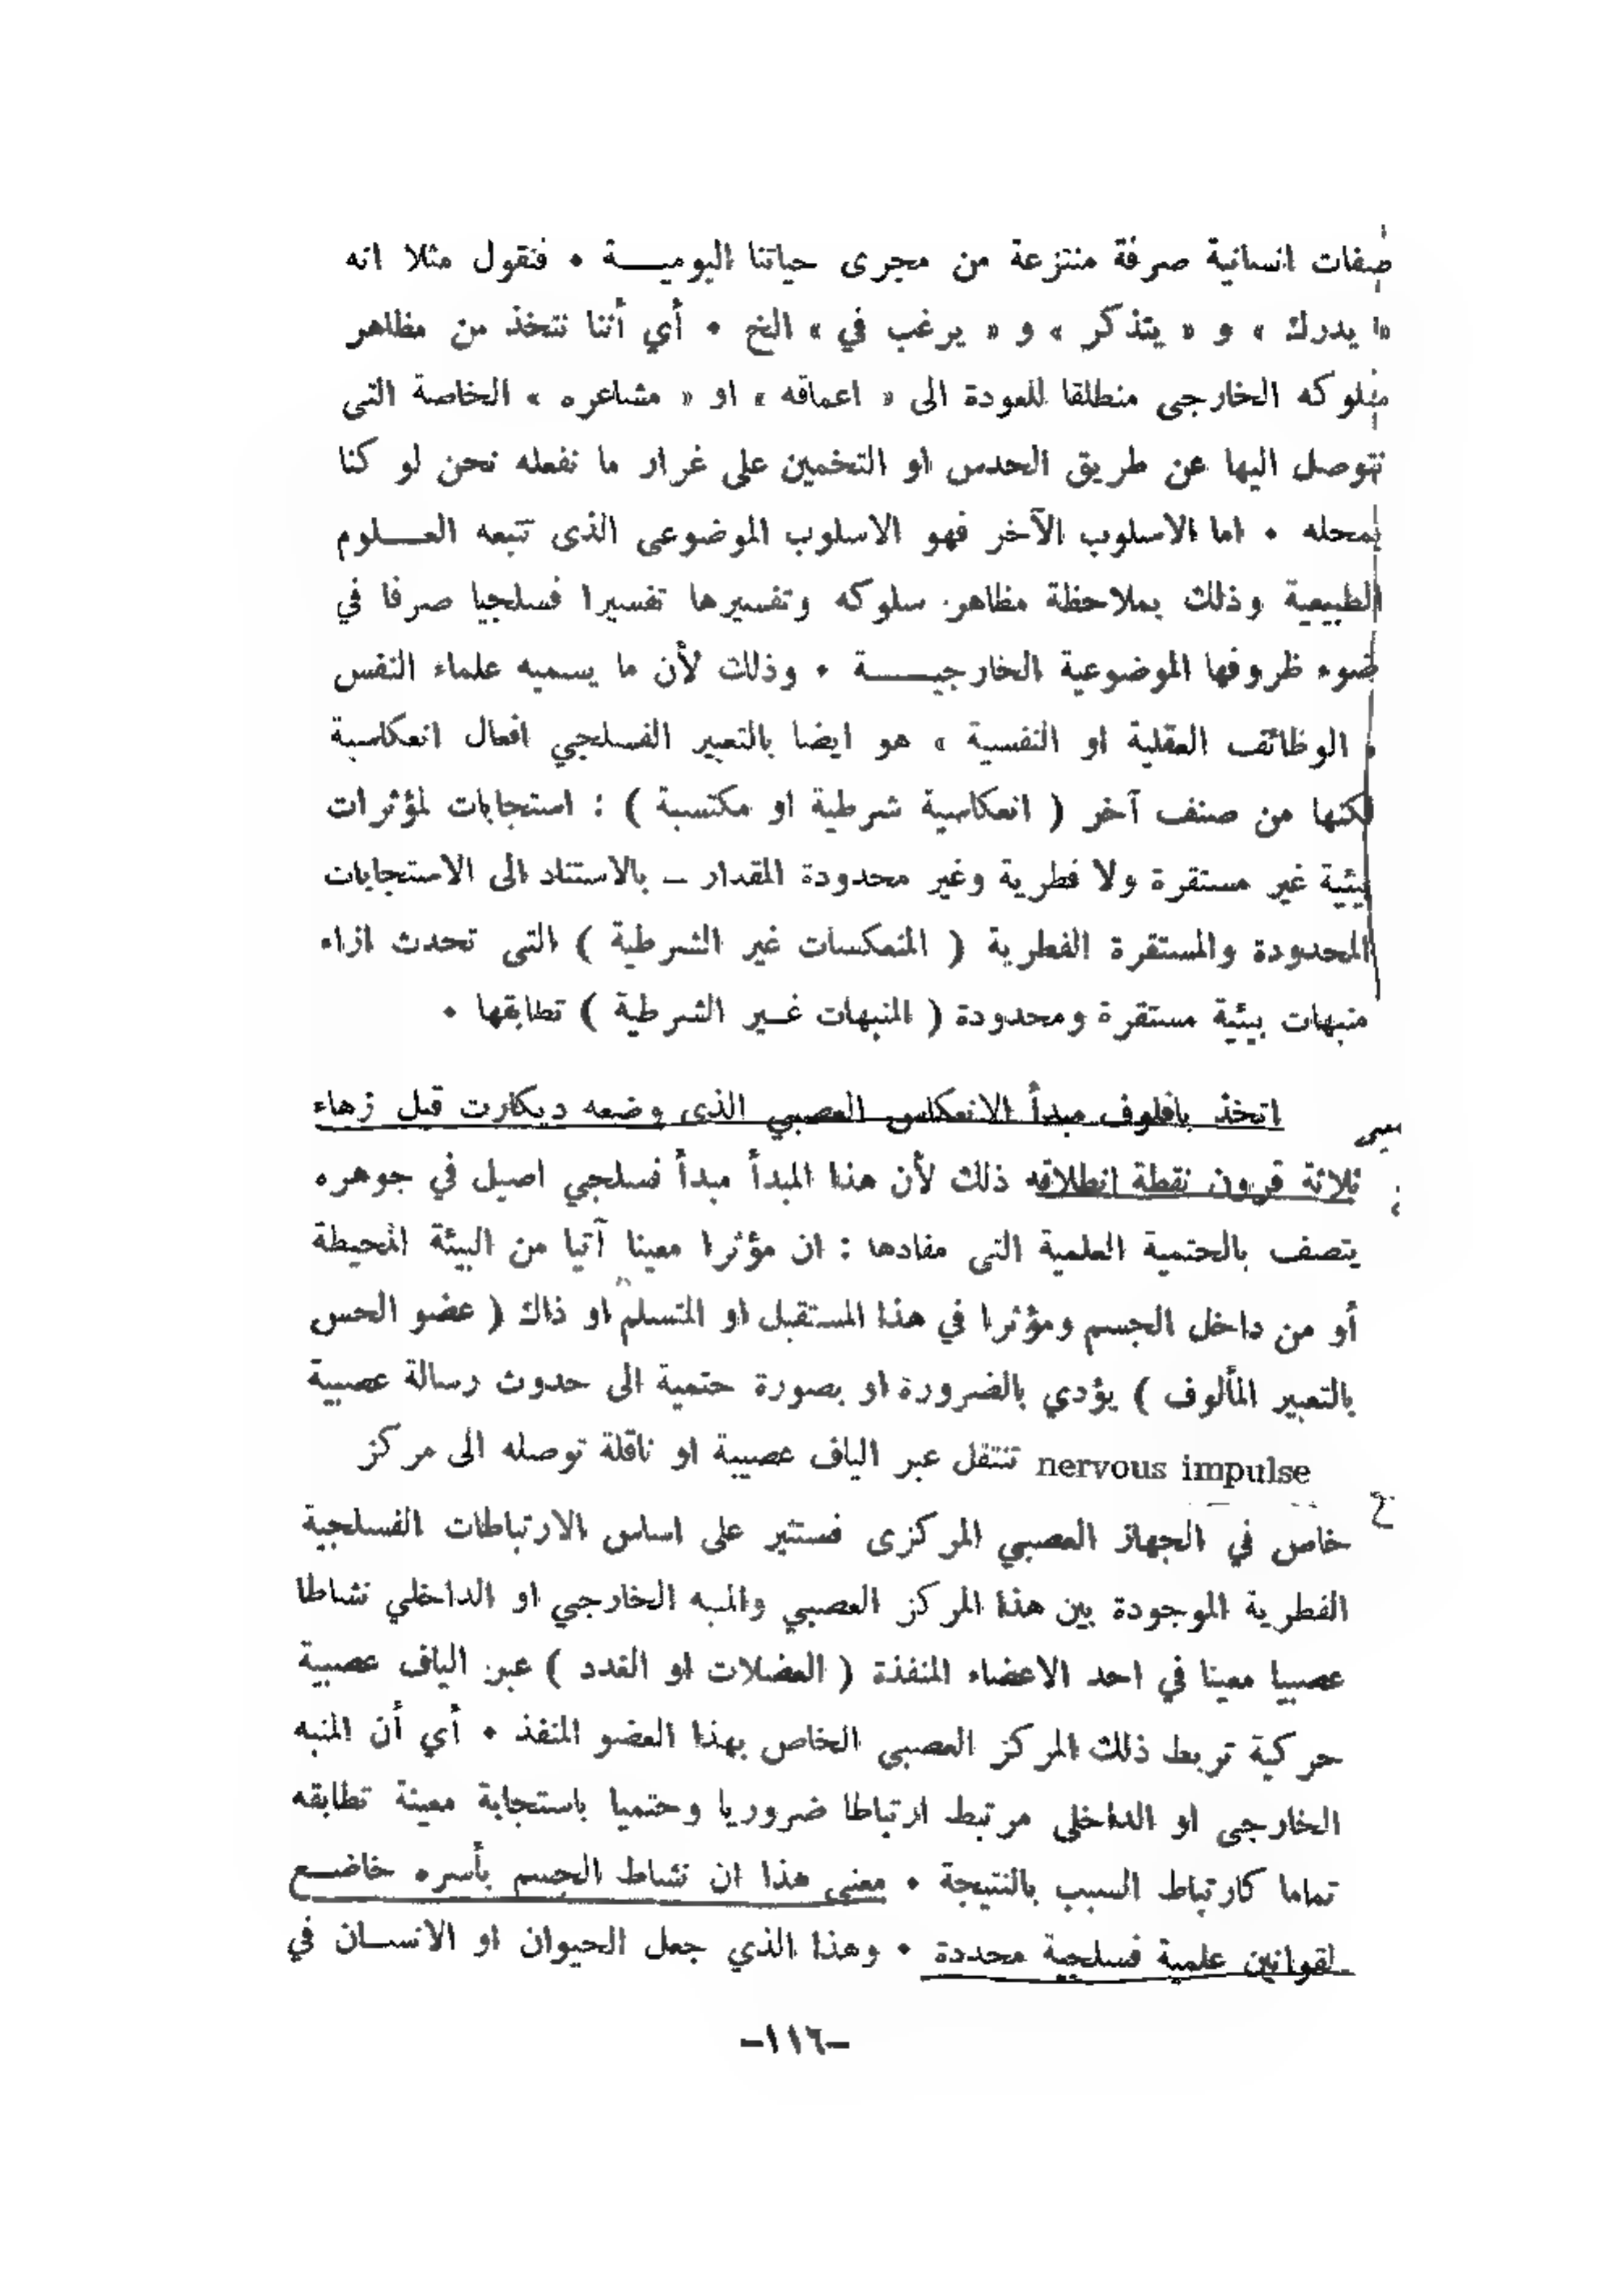 صفات انسانية صرفة منتزعة من مجرى حياتنا اليوميـــة • فنقول مثلا انه
« يدرك » و « يتذكر » و « يرغب في » الخ • أي أننا نتخذ من مظاهر
سلوكه الخارجى منطلقا للعودة الى « اعماقه » او « مشاعره » الخاصة التى
نتوصل اليها عن طريق الحدس او التخمين على غرار ما نفعله نحن لو كنا
بمحله • اما الاسلوب الآخر فهو الاسلوب الموضوعى الذى تتبعه العـــلوم
الطبيعية وذلك بملاحظة مظاهر سلوكه وتفسيرها تفسيرا فسلجيا صرفا في
ضوء ظروفها الموضوعية الخارجيـــــة • وذلك لأن ما يسميه علماء النفس
« الوظائف العقلية او النفسية » هو ايضا بالتعبير الفسلجي افعال انعكاسية
لكنها من صنف آخر ( انعكاسية شرطية او مكتسبة ) : استجابات لمؤثرات
بيئية غير مستقرة ولا فطرية وغير محدودة المقدار – بالاستناد الى الاستجابات
المحدودة والمستقرة الفطرية ( المنعكسات غير الشرطية ) التى تحدث ازاء
منبهات بيئية مستقرة ومحدودة ( المنبهات غـير الشرطية ) تطابقها •
اتخذ بافلوف مبدأ الانعكاس العصبي الذى وضعه ديكارت قبل زهاء
ثلاثة قرون نقطة انطلاقه ذلك لأن هذا المبدأ مبدأ فسلجي اصيل في جوهره
يتصف بالحتمية العلمية التى مفادها : ان مؤثرا معينا آتيا من البيئة المحيطة
أو من داخل الجسم ومؤثرا في هذا المستقبل او المتسلم او ذاك ( عضو الحس
بالتعبير المألوف ) يؤدي بالضرورة او بصورة حتمية الى حدوث رسالة عصبية
nervous impulse تنتقل عبر الياف عصبية او ناقلة توصله الى مركز
خاص في الجهاز العصبي المركزى فستثير على اساس الارتباطات الفسلجية
الفطرية الموجودة بين هذا المركز العصبي والمنبه الخارجي او الداخلي نشاطا
عصبيا معينا في احد الاعضاء المنفذة ( العضلات او الغدد ) عبر الياف عصبية
حركية تربط ذلك المركز العصبى الخاص بهذا العضو المنفذ • أي أن المنبه
الخارجى او الداخلى مرتبط ارتباطا ضروريا وحتميا باستجابة معينة تطابقه
تماما كارتباط السبب بالنتيجة • معنى هذا ان نشاط الجسم بأسره خاضـع
لقوانين علمية فسلجية محددة • وهذا الذي جعل الحيوان او الانســان في
–١١٦–